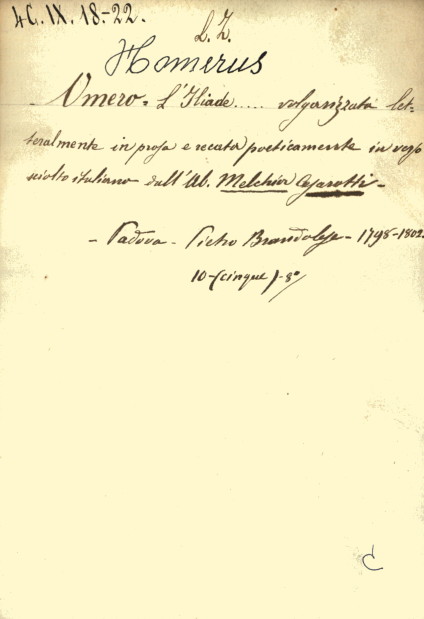 4C.IX.18-22.
L. Z.
Homerus
Omero = L'Iliade..... volgarizzata let-
teralmente in prosa e recata poeticamente in verso
sciolto italiano dall'Ab. Melchior Cesarotti -
- Padova - Pietro Brandolese - 1798-1802.
10-(cinque)-8°
C